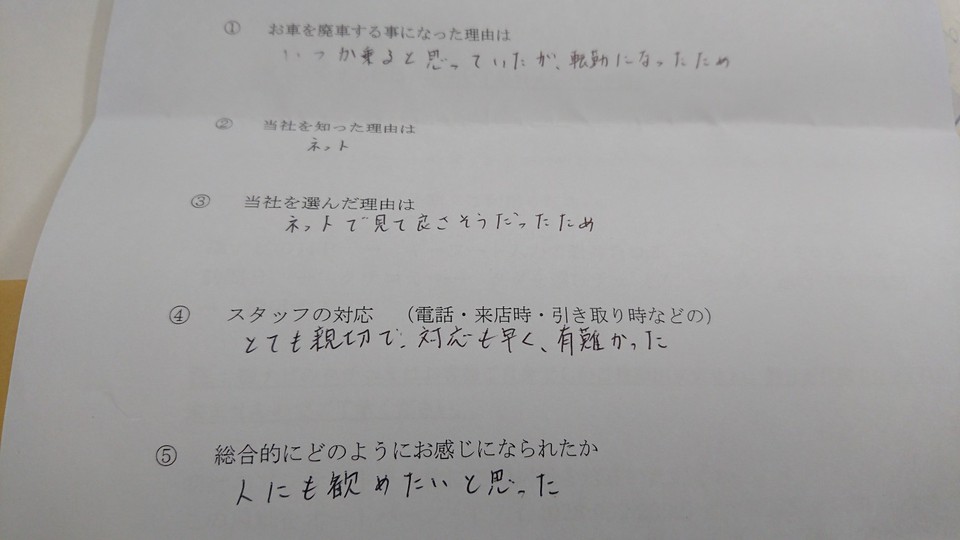 ① お車を廃車する事になった理由は
いつか乗ると思っていたが、転勤になったため
② 当社を知った理由は
ネット
③ 当社を選んだ理由は
ネットで見て良さそうだったため
④ スタッフの対応 （電話・来店時・引き取り時などの）
とても親切で、対応も早く、有難かった
⑤ 総合的にどのようにお感じになられたか
人にも歓めたいと思った